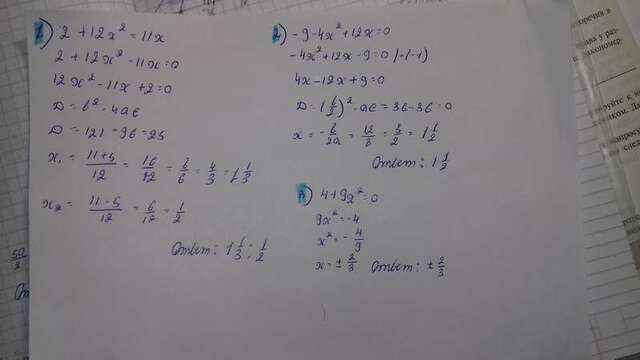 г) 2 + 12x² = 11x
2 + 12x² - 11x = 0
12x² - 11x + 2 = 0
D = b² - 4ac
D = 121 - 96 = 25
x₁ = 11+5/12 = 16/12 = 8/6 = 4/3 = 1 1/3
x₂ = 11-5/12 = 6/12 = 1/2
Ответ: 1 1/3; 1/2
-9-4x²+12x=0
-4x²+12x-9=0 |·(-1)
4x-12x+9=0
D = (b/2)² - ac = 36-36 = 0
x = -b/2a = 12/8 = 3/2 = 1 1/2
Ответ: 1 1/2
4+9x²=0
9x²=-4
x²=-4/9
x=± 2/3 Ответ: ± 2/3